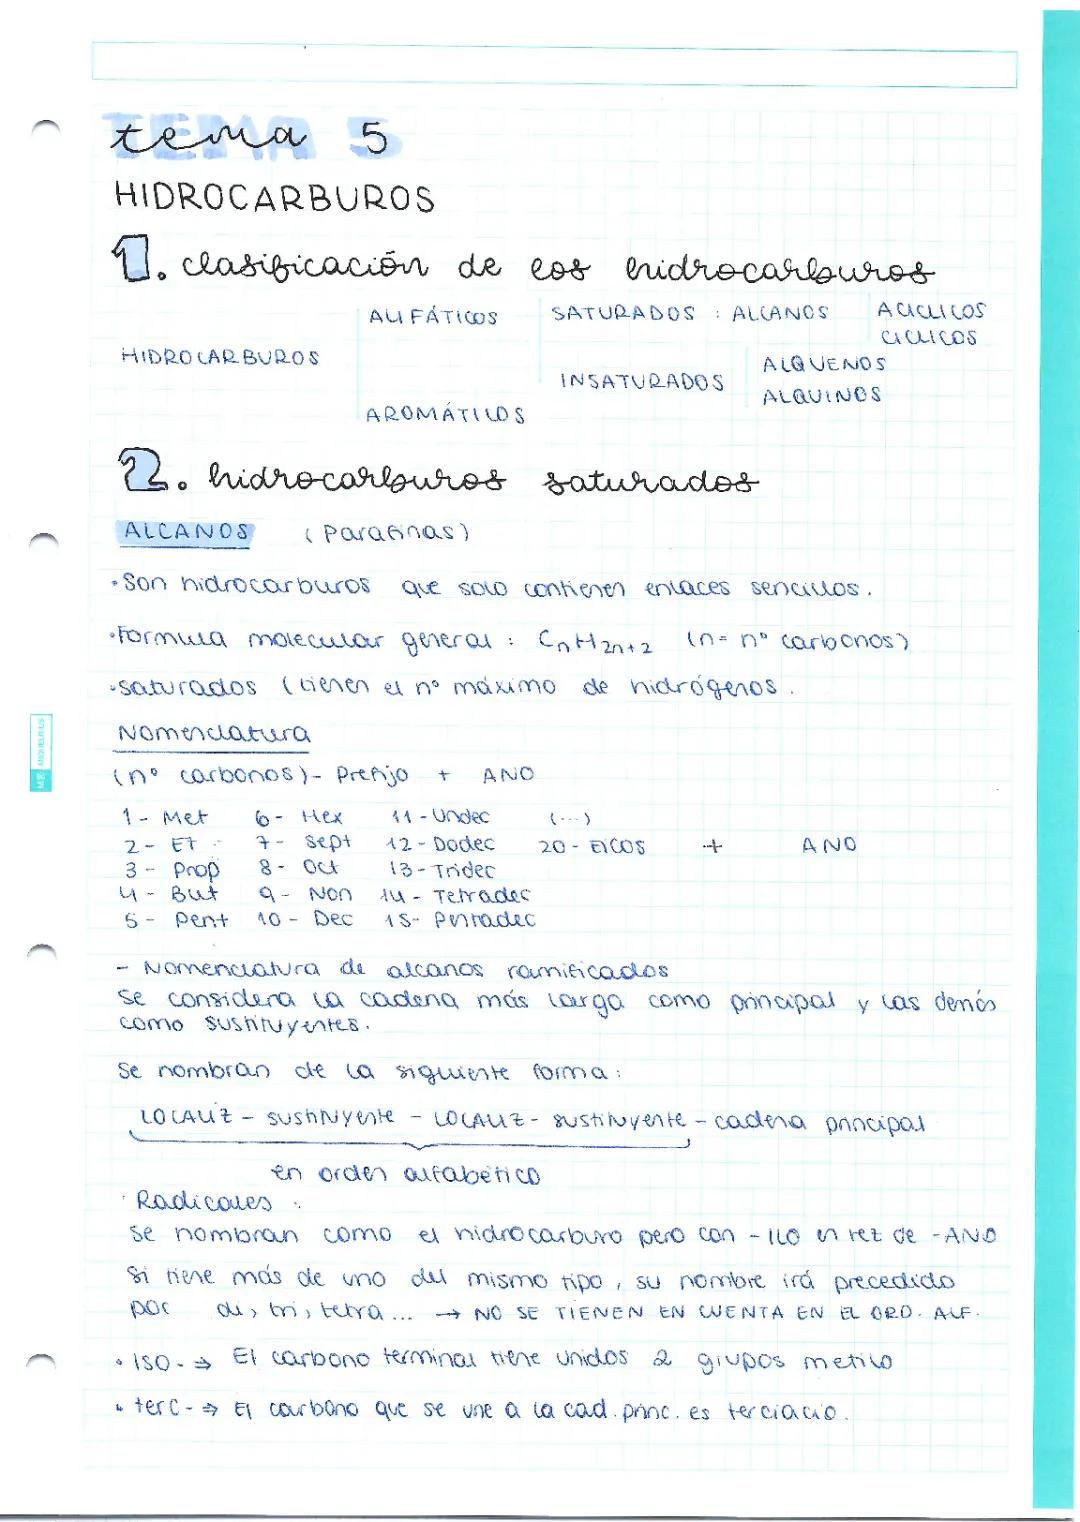 tema 5
HIDROCARBUROS
1. clasificación de los hidrocarburos
ALIFÁTICOS SATURADOS : ALCANOS ACICLICOS
CICLICOS
HIDROCARBUROS
ALQUENOS
INSATURADOS
ALQUINOS
AROMÁTICOS
2. hidrocarburos saturados
ALCANOS (Parafinas)
·Son hidrocarburos que solo contienen enlaces sencillos.
·Formula molecular general : CnH2n+2 (n= nº carbonos)
·Saturados (tienen el nº máximo de hidrógenos.
Nomenclatura
(nº carbonos)- Prefijo + ANO
1- Met 6- Hex 11-Undec (...)
2- Et 7- Sept 12-Dodec 20-EICOS + ANO
3- Prop 8- Oct 13-Tridec
4- But 9- Non 14- Tetradec
5- Pent 10- Dec 15- Pentadec
- Nomenclatura de alcanos ramificados
Se considera la cadena más larga como principal y las demás
como sustituyentes.
Se nombran de la siguiente forma:
LOCALIZ - sustituyente - LOCALIZ- sustituyente - cadena principal
en orden alfabético
· Radicales :
Se nombran como el hidrocarburo pero con -ILO en vez de -ANO
Si tiene más de uno del mismo tipo, su nombre irá precedido
por di, tri, tetra... → NO SE TIENEN EN CUENTA EN EL ORD. ALF.
· ISO- ⇒ El carbono terminal tiene unidos 2 grupos metilo
· terc- ⇒ El carbono que se une a la cad. princ. es terciacio.